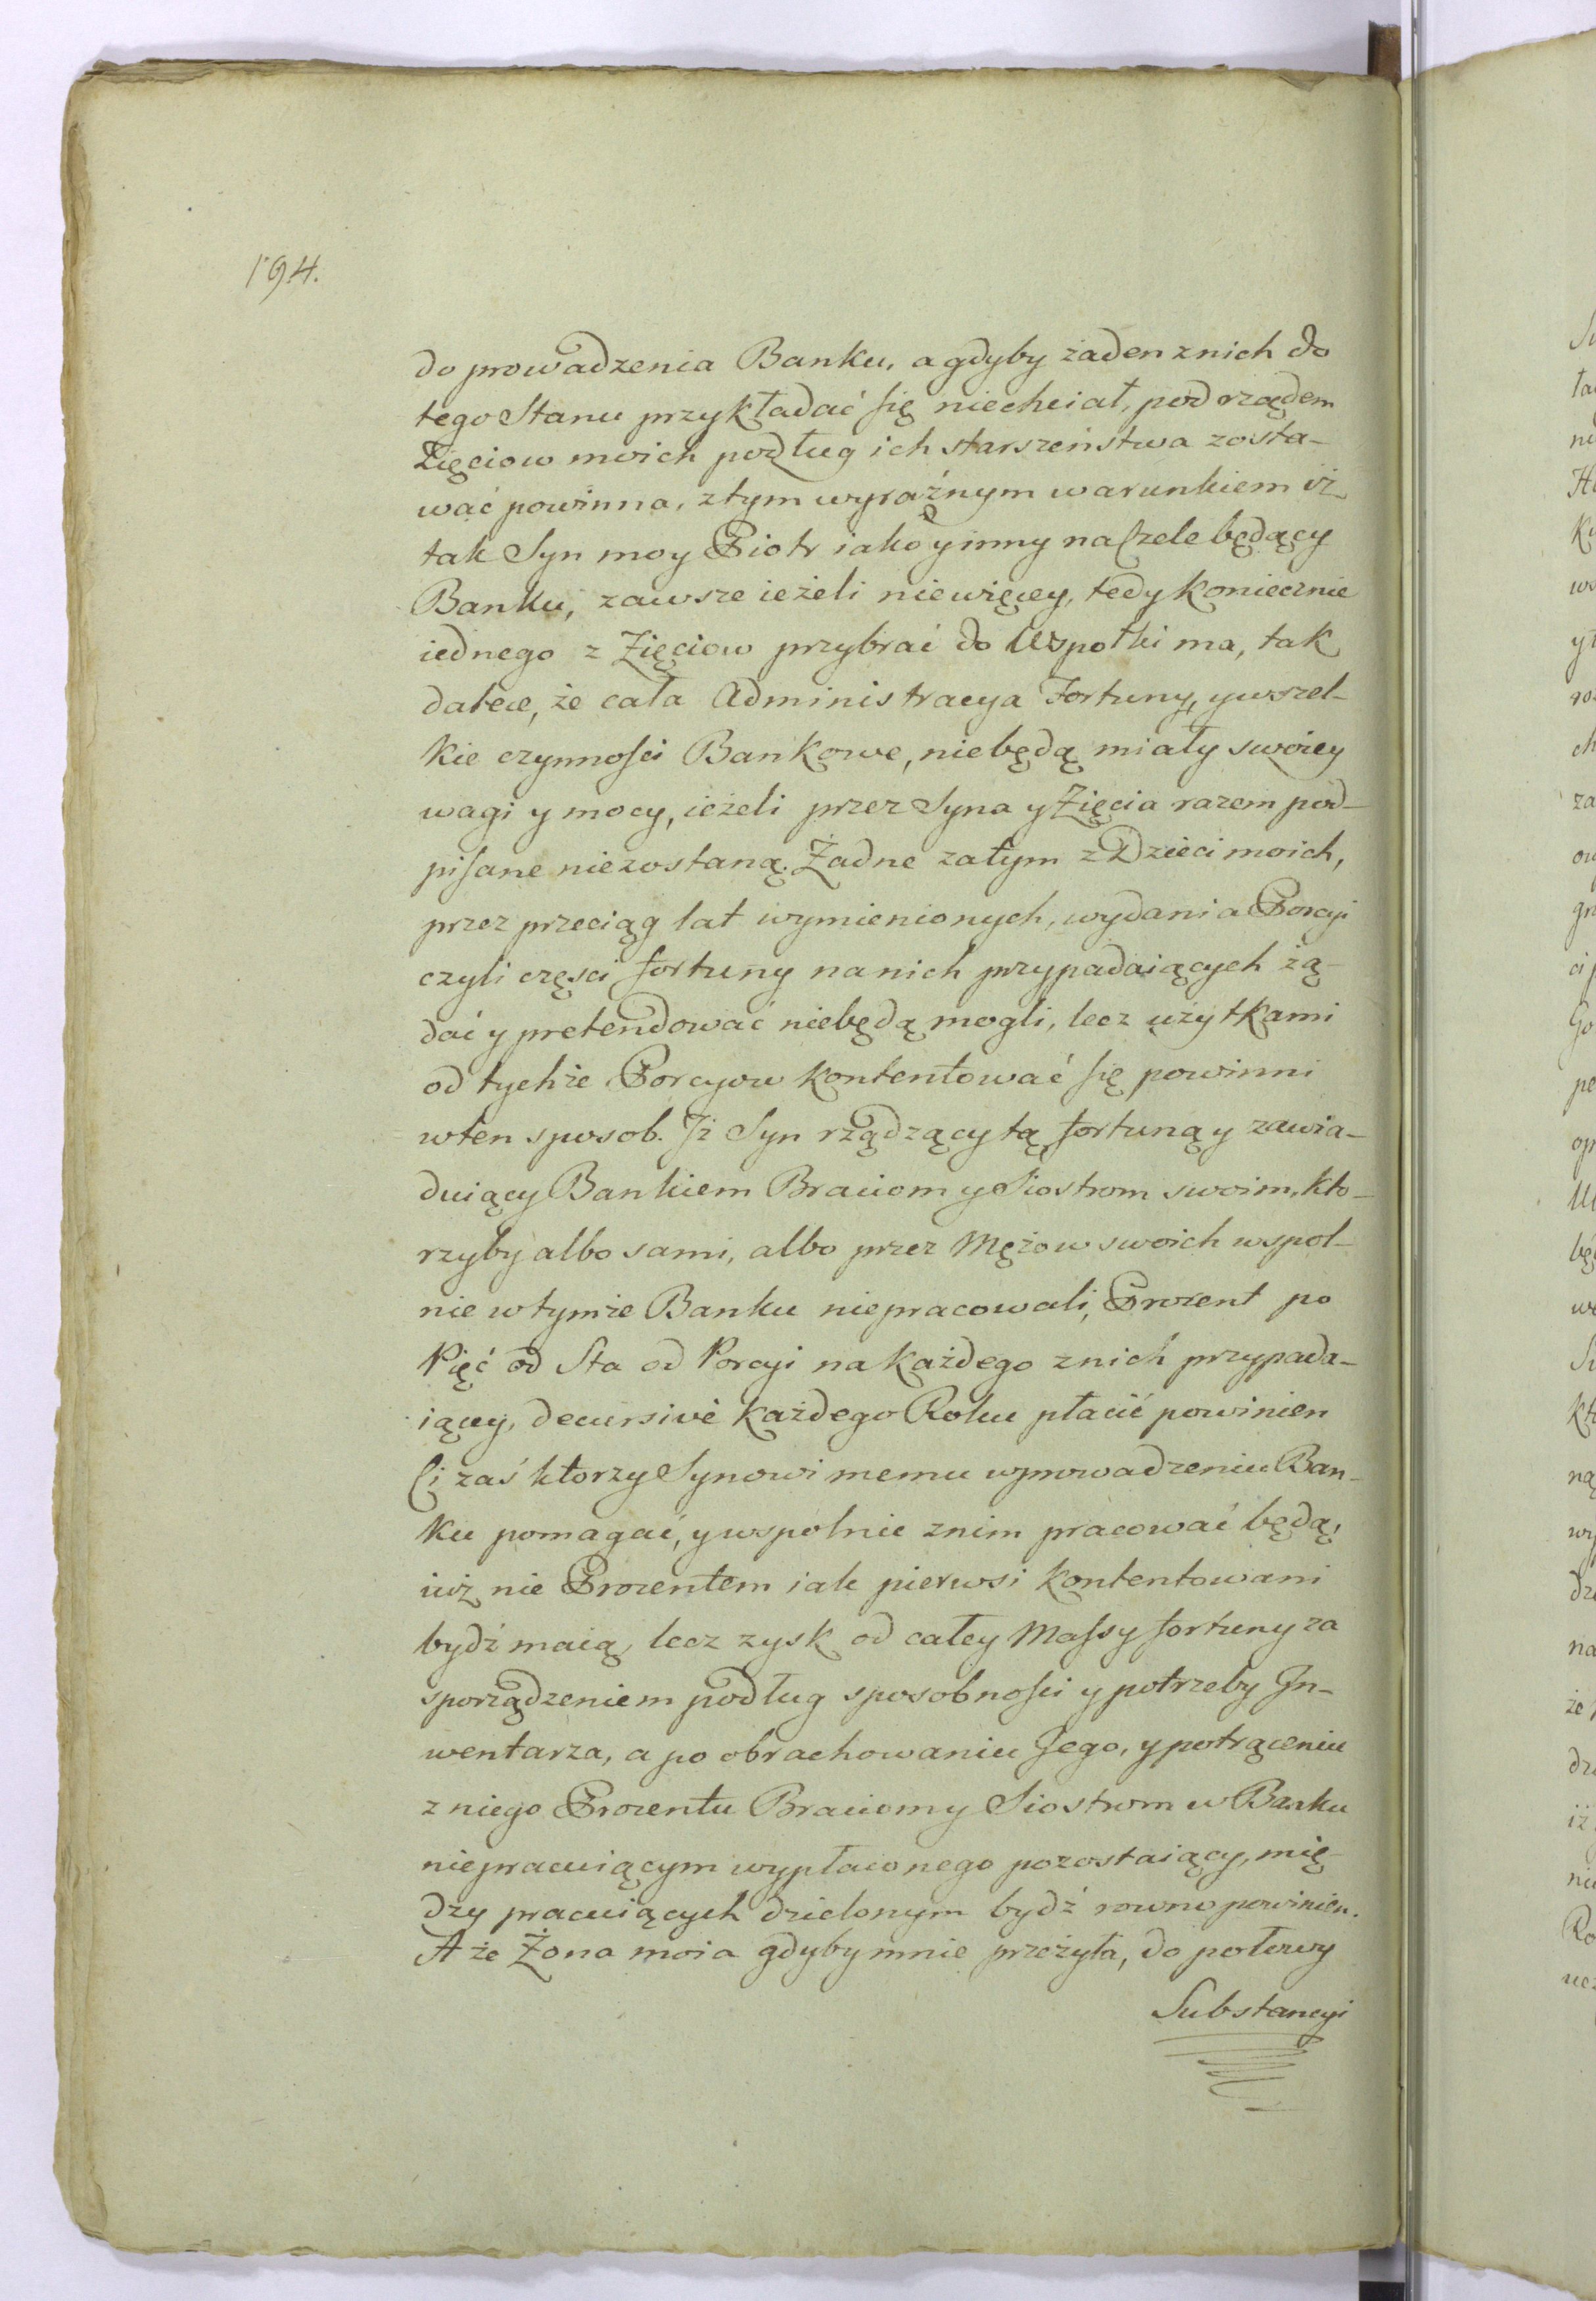 194.
do prowadzenia Banku, a gdyby żaden z nich do
tego Stanu przykładać się niechciał, pod rządem
Zięciow moich podług ich starszeństwa zosta-
wać powinna, z tym wyraźnym warunkiem iż
tak Syn moy Piotr iako y inny na Czele będący
Banku, zawsze ieżeli niewięcey, tedy koniecznie
iednego z Zięciow przybrać do Wspołki ma, tak
dalece, że cała Administracya Fortuny, y wszel-
kie czynności Bankowe, niebędą miały swoiey
wagi y mocy, ieżeli przez Syna y Zięcia razem pod-
pisane niezostaną. Żadne zatym z Dzieci moich,
przez przeciąg lat wymienionych, wydania Porcyi
czyli części fortuny na nich przypadaiących żą-
dać y pretendować niebędą mogli, lecz użytkami
od tychże Porcyow kontentować się powinni
w ten sposob. Jż Syn rządzący tą fortuną y zawia-
duiący Bankiem Braciom y Siostrom swoim, kto-
rzyby albo sami, albo przez Mężow swoich wspol-
nie w tymże Banku niepracowali, Procent po
Pięć od Sta od Porcyi na każdego z nich przypada-
iącey, decursivè każdego Roku płacić powinien
Ci zaś ktorzy Synowi memu w prowadzeniu Ban-
ku pomagać, y wspolnie z nim pracować będą,
iuż nie Procentem iak pierwsi kontentowani
bydź maią, lecz zysk od całey Massy fortuny za
sporządzeniem podług sposobności y potrzeby In-
wentarza, a po obrachowaniu Jego, y potrąceniu
z niego Procentu Braciom y Siostrom w Banku
niepracuiącym wypłaconego pozostaiący, mię-
dzy pracuiących dzielonym bydź rowno powinien.
A że Żona moia gdyby mnie przeżyła, do połowy
Substancyi